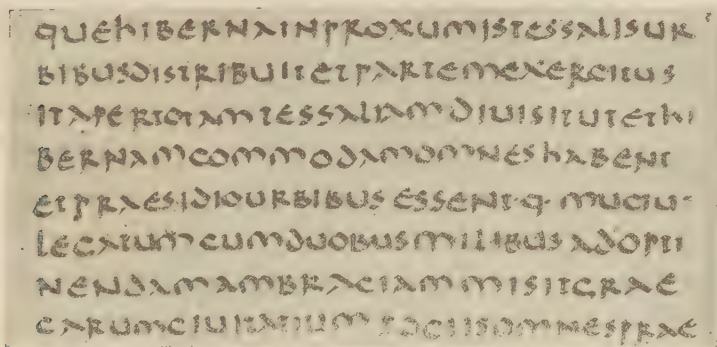 quehibernainproxumistessalisur
bibusdistribuitetpartemexercitus
itapertotamtessaliamdiuisitutethi
bernamcommodamomneshabent
etpraesidiourbibusessent·q·muciu
legatumcumduobusmilibusadopti
nendamambraciammisitgrae
carumciuitatiumsociisomnesprae